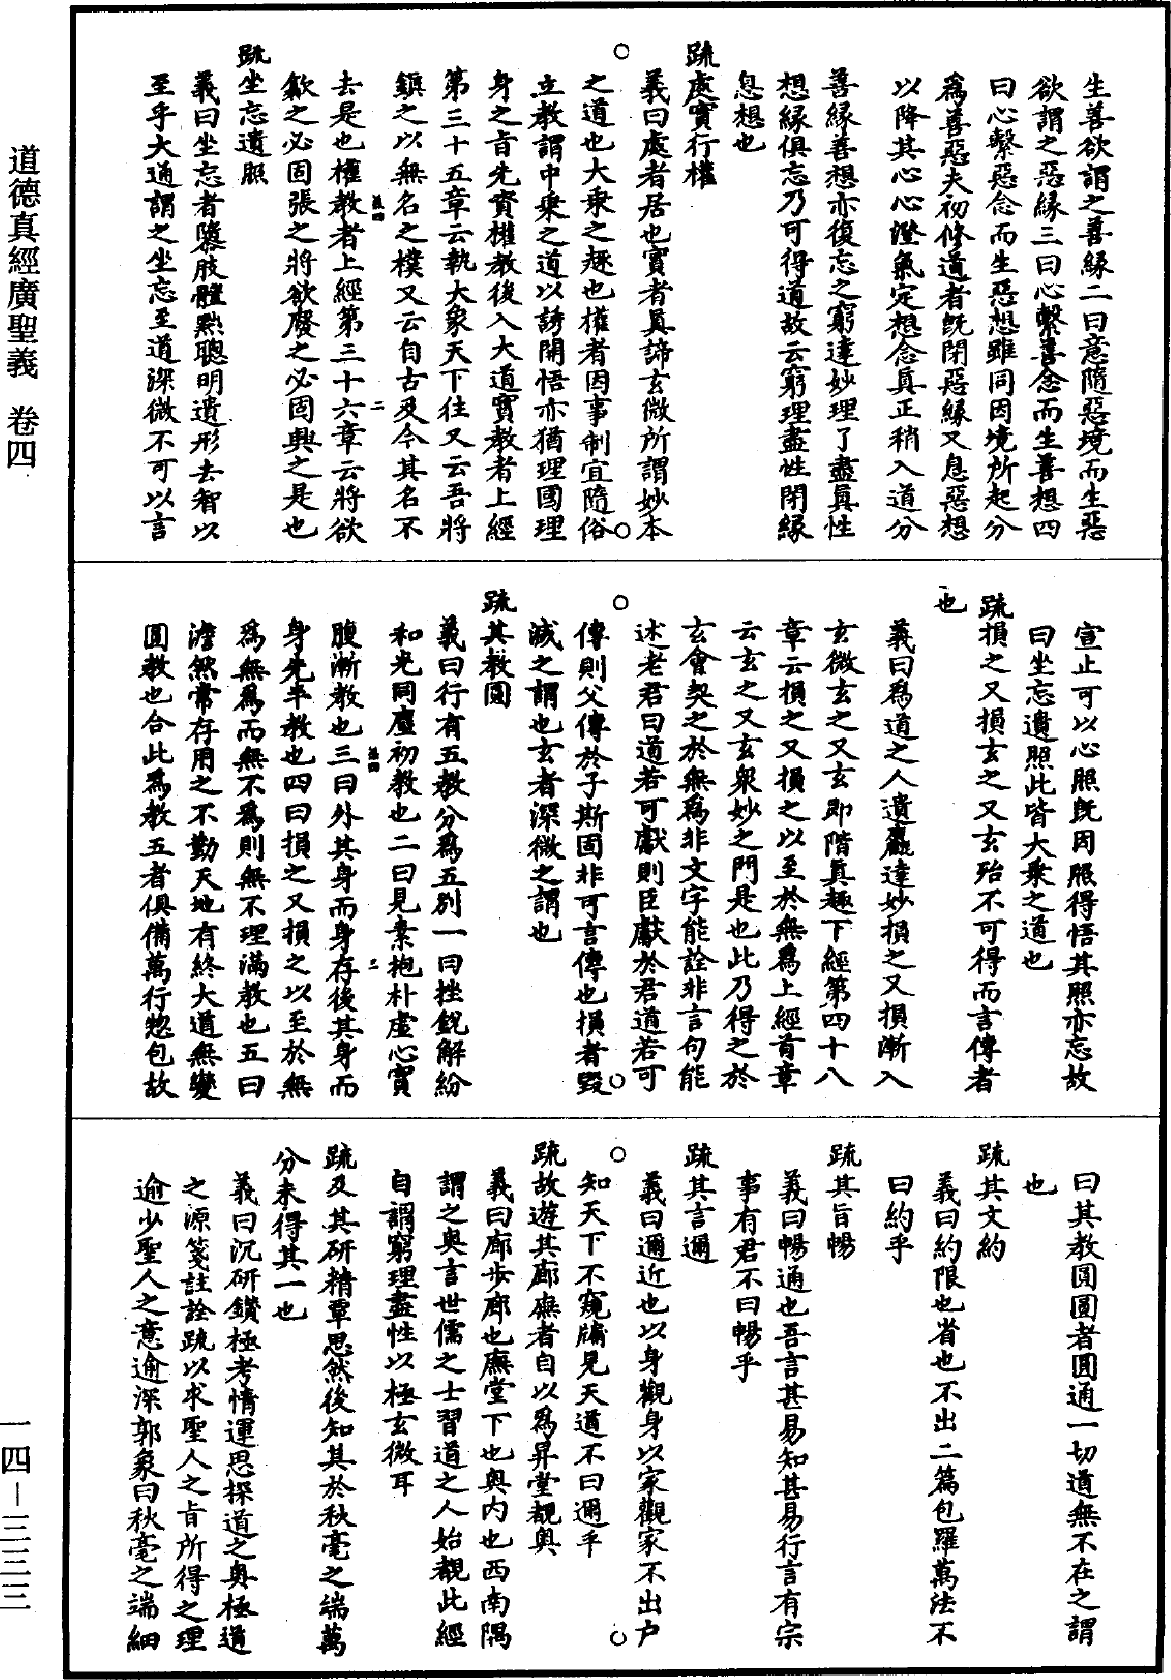 生善欲謂之善緣二曰意隨惡境而生惡
欲謂之惡緣三曰心繫善念而生善想四
曰心繫惡念而生惡想雖同因境所起分
爲善惡夫初修道者旣閉惡緣又息惡想
以降其心心澄氣定想念真正稍入道分
善緣善想亦復忘之窮達妙理了盡真性
想緣俱忘乃可得道故云窮理盡性閉緣
息想也
疏處實行權
義曰處者居也實者真諦玄微所謂妙本
之道也大乘之趣也權者因事制宜隨俗
立教謂中乘之道以誘開悟亦猶理國理
身之旨先資權教後入大道實教者上經
第三十五章云執大象天下往又云吾將
鎮之以無名之樸又云自古及今其名不
去是也權教者上經第三十六章云將欲
歙之必固張之將欲廢之必固興之是也
疏坐忘遺照
義曰坐忘者隳肢體黜聰明遺形去智以
至乎大通謂之坐忘至道深微不可以言
宣止可以心照旣因照得悟其照亦忘故
曰坐忘遺照此皆大乘之道也
疏損之又損玄之又玄殆不可得而言傳者
也
義曰爲道之人遺麤達妙損之又損漸入
玄微玄之又玄即階真趣下經第四十八
章云損之又損之以至於無爲上經首章
云玄之又玄衆妙之門是也此乃得之於
玄會契之於無爲非文字能詮非言句能
述老君曰道若可獻則臣獻於君道若可
傳則父傳於子斯固非可言傳也損者毀
減之謂也玄者深微之謂也
疏其教圓
義曰行有五教分爲五別一曰挫銳解紛
和光同塵初教也二曰見素抱朴虛心實
腹漸教也三曰外其身而身存後其身而
身先半教也四曰損之又損之以至於無
爲無爲而無不爲則無不理滿教也五曰
湛然常存用之不勤天地有終大道無變
圓教也合此爲教五者俱備萬行惣包故
曰其教圓圓者圓通一切道無不在之謂
也
疏其文約
義曰約限也省也不出二篇包羅萬法不
曰約乎
疏其旨暢
義曰暢通也吾言甚易知甚易行言有宗
事有君不曰暢乎
疏其言邇
義曰邇近也以身觀身以家觀家不出户
知天下不窺牖見天道不曰邇乎
疏故遊其廊廡者自以爲昇堂覩奧
義曰廊步廊也廡堂下也奧内也西南隅
謂之奧言世儒之士習道之人始覩此經
自謂窮理盡性以極玄微耳
疏及其研精覃思然後知其於秋毫之端萬
分未得其一也
義曰沉研鑽極考情運思探道之奥極道
之源箋註詮疏以求聖人之旨所得之理
逾少聖人之意逾深郭象曰秋毫之端細
道德真經廣聖義 卷四
一四－三三三